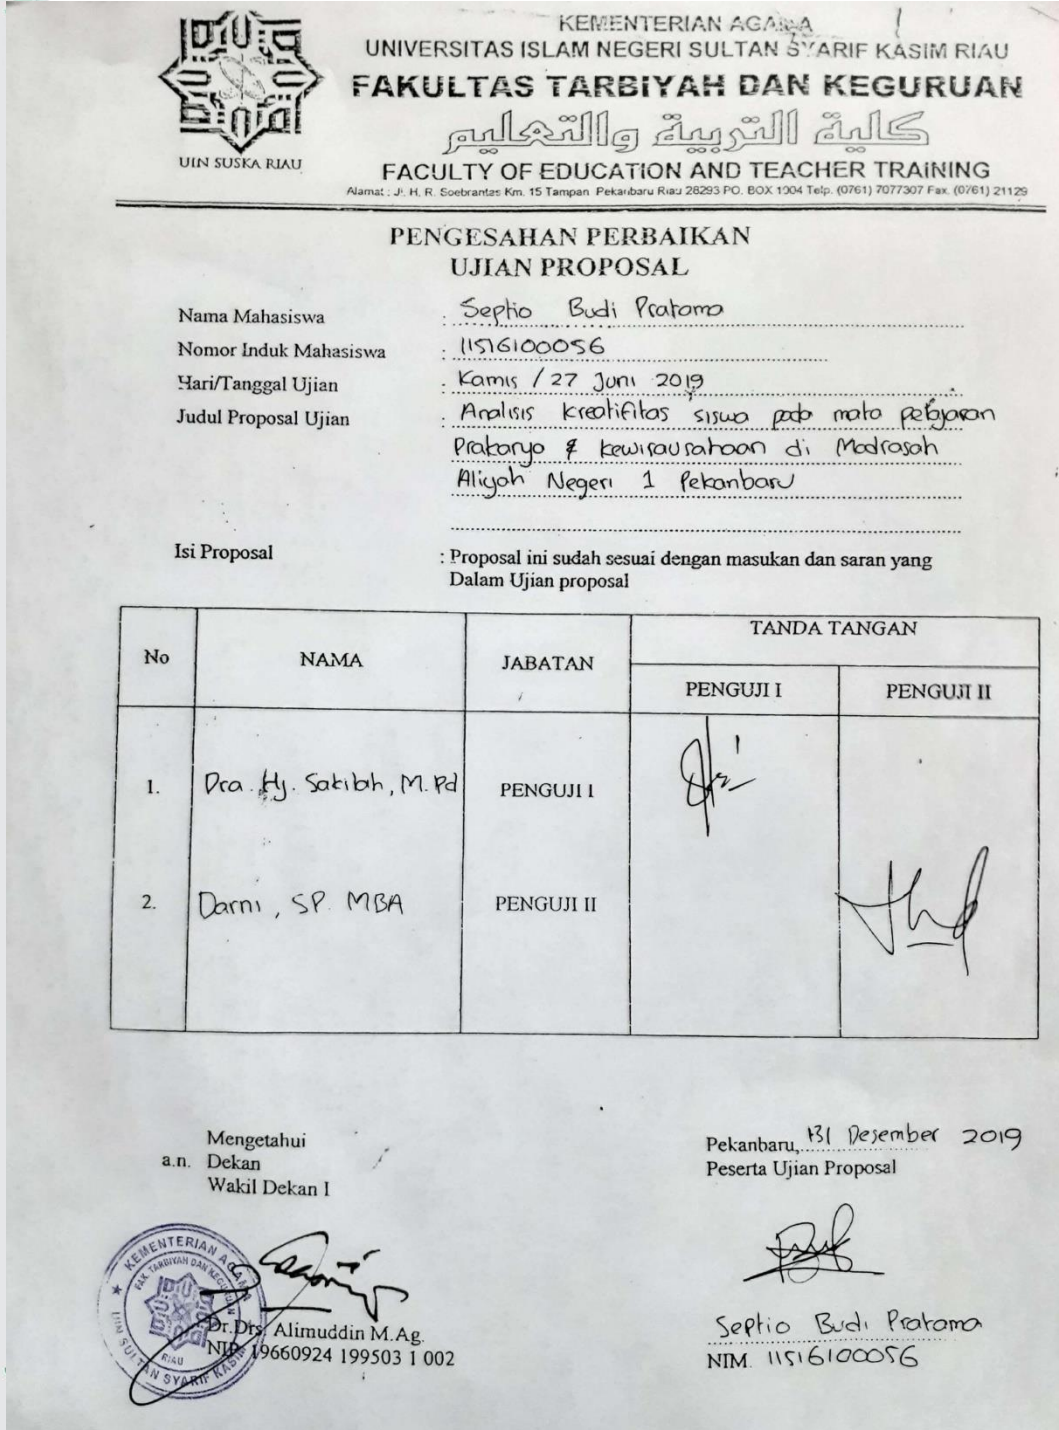 KEMENTERIAN AGAMA
UNIVERSITAS ISLAM NEGERI SULTAN SYARIF KASIM RIAU
FAKULTAS TARBIYAH DAN KEGURUAN
كلية التربية والتعليم
FACULTY OF EDUCATION AND TEACHER TRAINING
Alamat : Jl. H. R. Soebrantas Km. 15 Tampan Pekanbaru Riau 28293 PO. BOX 1004 Telp. (0761) 7077307 Fax. (0761) 21129
UIN SUSKA RIAU
PENGESAHAN PERBAIKAN
UJIAN PROPOSAL
Nama Mahasiswa : Septio Budi Pratama
Nomor Induk Mahasiswa : 11516100056
Hari/Tanggal Ujian : Kamis / 27 Juni 2019
Judul Proposal Ujian : Analisis kreatifitas siswa pada mata pelajaran
Prakarya & kewirausahaan di Madrasah
Aliyah Negeri 1 Pekanbaru
Isi Proposal : Proposal ini sudah sesuai dengan masukan dan saran yang
Dalam Ujian proposal
No NAMA JABATAN TANDA TANGAN
PENGUJI I PENGUJI II
1. Dra. Hj. Sakibah, M.Pd PENGUJI I
2. Darni, SP. MBA PENGUJI II
Mengetahui
a.n. Dekan
Wakil Dekan I
KEMENTERIAN AGAMA
FAK TARBIYAH DAN KEGURUAN
UIN SULTAN SYARIF KASIM
RIAU
Dr.Drs. Alimuddin M.Ag.
NIP. 19660924 199503 1 002
Pekanbaru, 31 Desember 2019
Peserta Ujian Proposal
Septio Budi Pratama
NIM. 11516100056